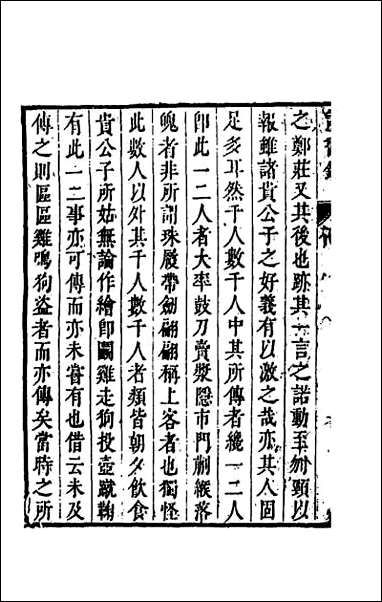 之鄭莊又其後也跡其一言之諾動至刎頸以
報雖諸貴公子之好義有以激之哉亦其人固
足多耳然千人數千人中其所傳者纔一二人
卽此一二人者大率鼓刀賣漿隱市門削緱落
魄者非所謂珠履帶劍翩翩稱上客者也獨怪
此數人以外其千人數千人者類皆朝夕飲食
貴公子所姑無論作繪卽鬬雞走狗投壺蹴鞠
有此一二事亦可傳而亦未審有也借云未及
傳之則區區雞鳴狗盜者而亦傳矣當時之所